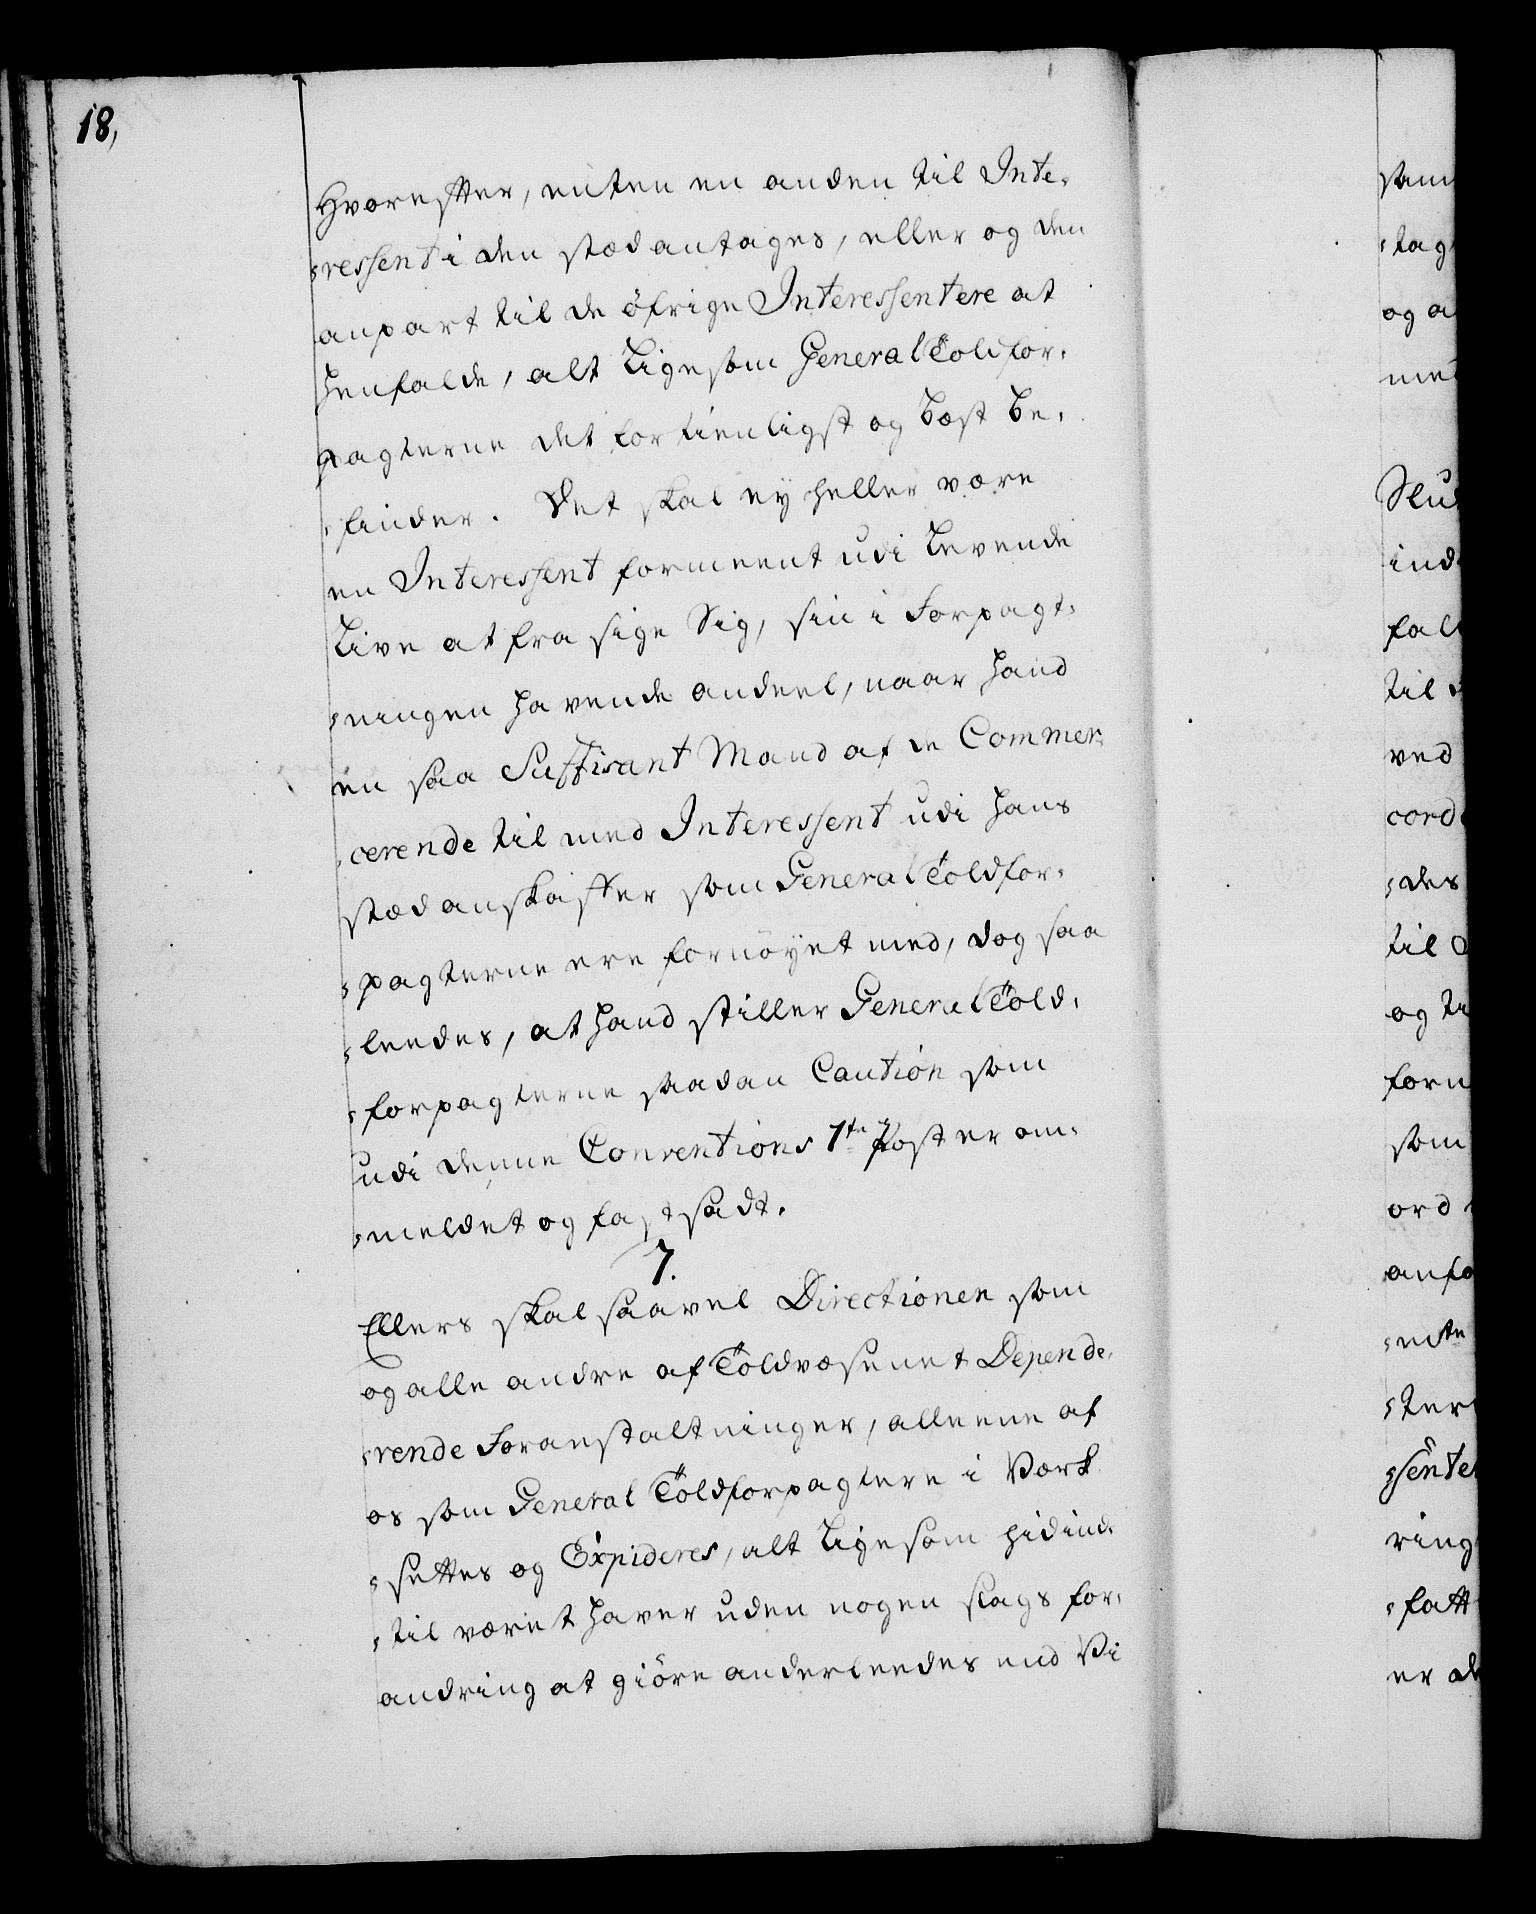 18,
Hvorefter, enten en anden til Inte-
-ressent i den stæd antages, eller og den
anpart til de öfrige Interessentere at
henfalde, alt ligesom General Toldfor-
pagterne det fortienligst og best be-
-finder. Det skal ey heller være
en Interessent formeent udi levende
live at fra sige Sig, sin i Forpagt-
-ningen havende andeel, naar hand
en saa Suffisant Mand af de Commer-
-cerende til med Interessent udi hans
stæd anskaffer som General Toldfor-
-pagterne ere fornöyet med, dog saa
-leedes, at hand stiller General Told-
-forpagterne saadan Caution som
udi denne Conventions 1te Post er om-
-meldet og fastsadt.
7.
Ellers skal saavel Directionen som
og alle andre af Toldvæsenet Depende-
-rende Foranstaltninger, alleene af
os som General Toldforpagtere i Værk
-settes og Expideres, alt ligesom hidind-
-til været haver uden nogen slags for-
andring at giöre anderleedes end Vi
sam
-tag
og a
med
Slu
ind
fal
til
ved
cord
-des
til
og ti
forn
som
ord
anfo
-ente
-ter
-sente
ring
-fatt
er de